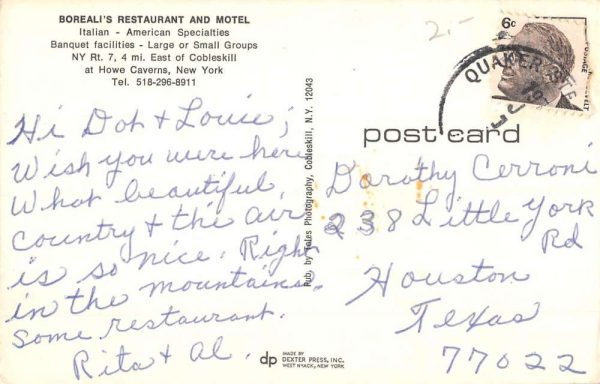 BOREALI'S RESTAURANT AND MOTEL
Italian - American Specialties
Banquet facilities - Large or Small Groups
NY Rt. 7, 4 mi. East of Cobleskill
at Howe Caverns, New York
Tel. 518-296-8911
Hi Dot & Louie;
Wish you were here
What beautiful
Country & the air
is so nice. Right
in the mountains.
Some restaurant.
Rita & Al.
Pub. by Photography, Cobleskill, N.Y. 12043
dp
MADE BY
DEXTER PRESS, INC.
WEST NYACK, NEW YORK
2.-
6c
POSTAGE
QUAKER
post card
Dorothy Cerroni
238 Little York
Rd
Houston
Texas
77022